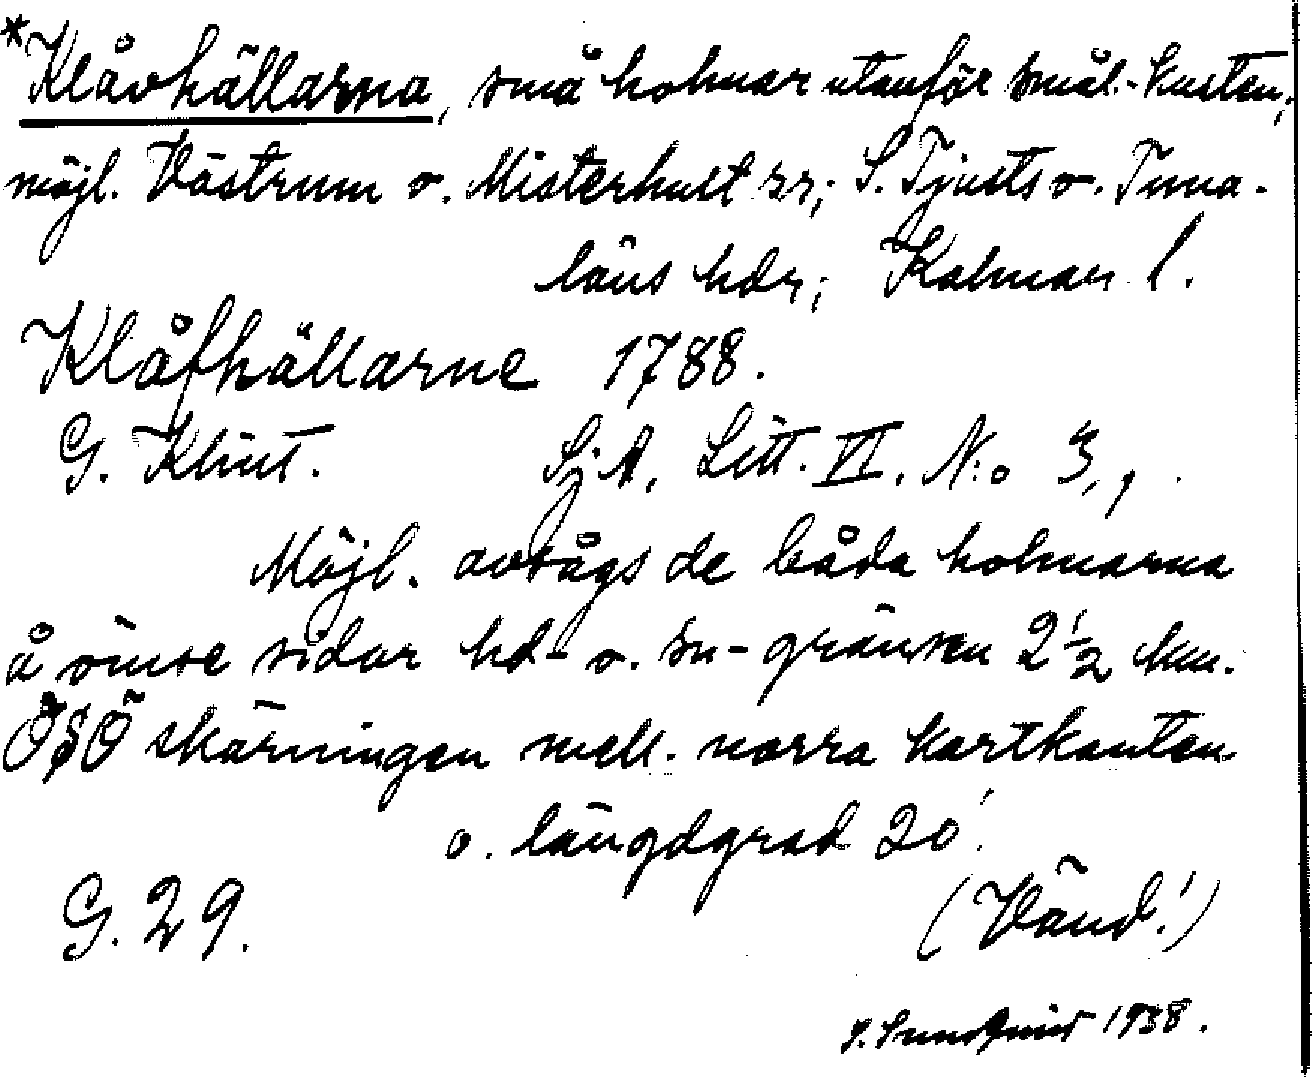 *Klåvhällarna, små holmar utanför Smål.-kusten,
möjl. Västrum o. Misterhult srr; S. Tjusts o. Tuna-
läns hdr; Kalmar l.
Klåfhällarne 1788.
G. Klint. Sj.A. Litt. VI. N:o 3,,.
Möjl. avsågs de båda holmarna
å ömse sidor hd- o. sn-gränsen 2 1/2 km.
ÖSÖ skärningen mell. norra kartkanten
o. längdgrad 20'.
G. 29. (Vänd!)
S. Sundquist 1938.